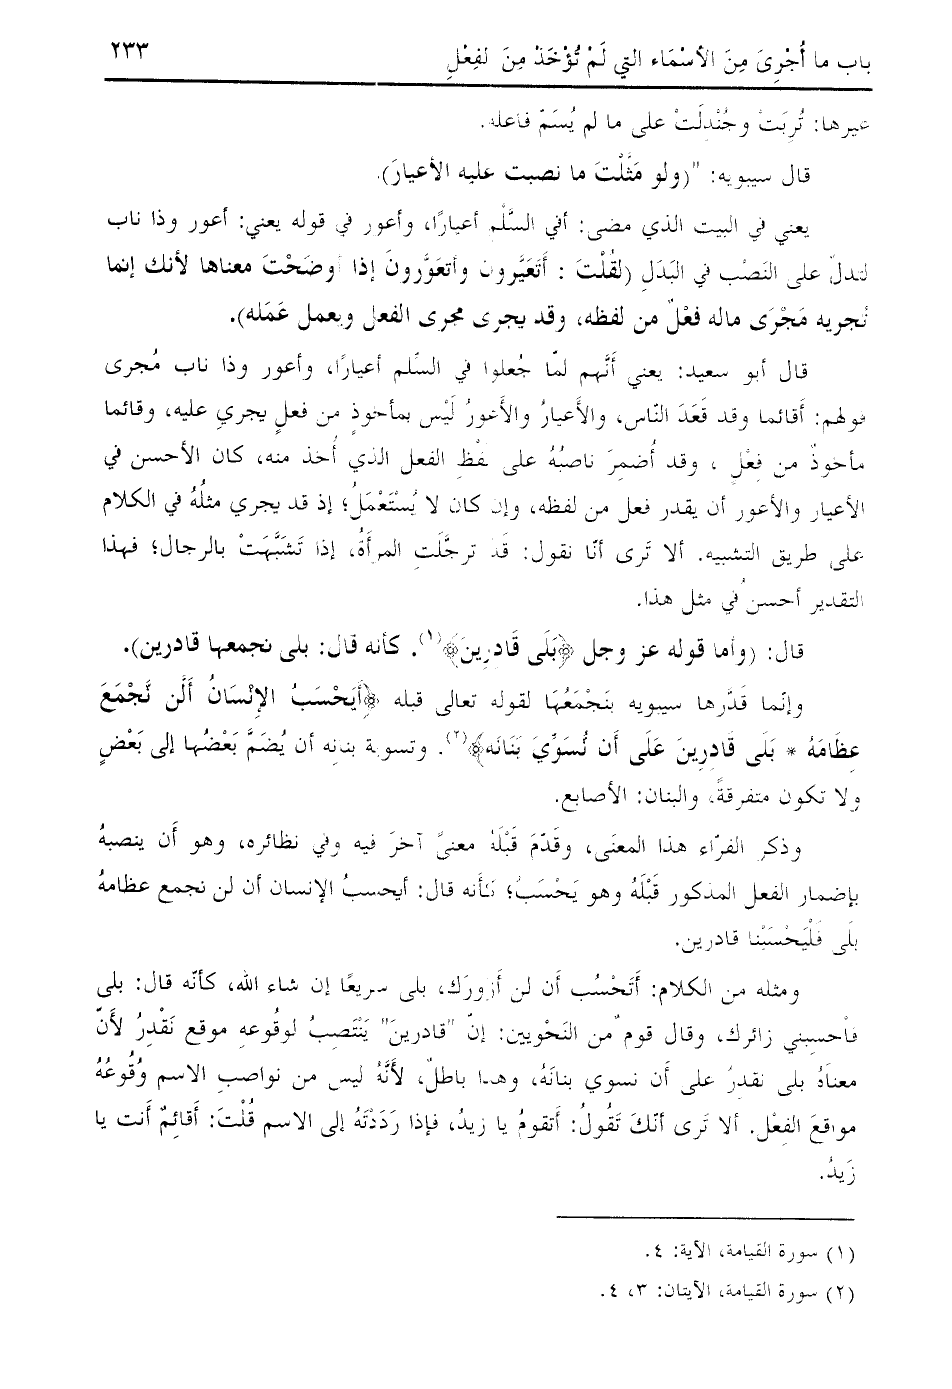 باب ما أُجْرِىَ مِنَ الأسْمَاء التي لَمْ تُؤْخَذْ مِنَ لفِعْلِ ٢٣٣
غيرها: تُرِبَتْ وجُنْدِلَتْ على ما لم يُسَمّ فاعله.
قال سيبويه: "(ولو مَثَّلْتَ ما نصبت عليه الأعيارَ).
يعني في البيت الذي مضى: أفي السِّلْمِ أعيارًا، وأعور في قوله يعني: أعور وذا ناب
لتدلّ على النَصْب في البَدَلِ (لقُلْتَ : أتَعَيَّرون وأتعوَّرونَ إذا أوضَحْتَ معناها لأنك إنما
تُجريه مَجْرَى ماله فعْلٌ من لفظه، وقد يجرى مجرى الفعل ويعمل عَمَله).
قال أبو سعيد: يعني أَنَّهم لمّا جُعلوا في السِّلم أعيارًا، وأعور وذا ناب مُجرى
قولهم: أَقائما وقد قَعَدَ النّاس، والأَعيارُ والأَعورُ لَيْس بمأخوذٍ من فعلٍ يجري عليه، وقائما
مأخوذٌ من فِعْلٍ ، وقد أُضمِرَ ناصبُهُ على لفْظِ الفعل الذي أُخذ منه، كان الأحسن في
الأعيار والأعور أن يقدر فعل من لفظه، وإن كان لا يُسْتَعْمَلُ؛ إذ قد يجري مثلُهُ في الكلام
على طريق التشبيه. ألا تَرى أنّا نقول: قد ترجَّلَتِ المرأَةُ، إذا تَشَبَّهَتْ بالرجال؛ فهذا
التقدير أحسنُ في مثل هذا.
قال: (وأما قوله عز وجل ﴿بَلَى قَادِرِينَ﴾(١). كأنه قال: بلى نجمعها قادرين).
وإنّما قَدَّرها سيبويه بنَجْمَعُهَا لقوله تعالى قبله ﴿أَيَحْسَبُ الإنْسَانُ أَلَّن نَّجْمَعَ
عِظَامَهُ * بَلَى قَادِرِينَ عَلَى أَن نُسَوِّيَ بَنَانَه﴾(٢). وتسوية بنانه أن يُضَمَّ بَعْضُها إلى بَعْضٍ
ولا تكون متفرقةً، والبنان: الأصابع.
وذكر الفرّاء هذا المعنَى، وقَدّمَ قَبْلَهُ معنىً آخرَ فيه وفي نظائره، وهو أَن ينصبهُ
بإضمار الفعل المذكور قَبْلَهُ وهو يَحْسَبُ؛ كأنه قال: أيحسبُ الإنسان أن لن نجمع عظامهُ
بلَى فَلْيَحْسَبْنا قادرين.
ومثله من الكلام: أَتَحْسُب أَن لن أَزورَك، بلى سريعًا إن شاء الله، كأنّه قال: بلى
فاحسبني زائرك، وقال قوم من النَحْويين: إنّ "قادرينَ" يَنْتَصِبُ لوقُوعهِ موقع نَقْدِرُ لأَنّ
معناهُ بلى نقدرُ على أَن نسوي بنانَهُ، وهذا باطلٌ، لأَنَّهُ ليس من نواصبِ الاسم وقُوعُهُ
مواقعَ الفِعْل. ألا تَرى أنّكَ تَقُولُ: أتقومُ يا زيدُ، فإذا رَدَدْتَهُ إلى الاسم قُلْتَ: أَقائمٌ أَنت يا
زَيدُ.
(١) سورة القيامة، الآية: ٤.
(٢) سورة القيامة، الآيتان: ٣، ٤.